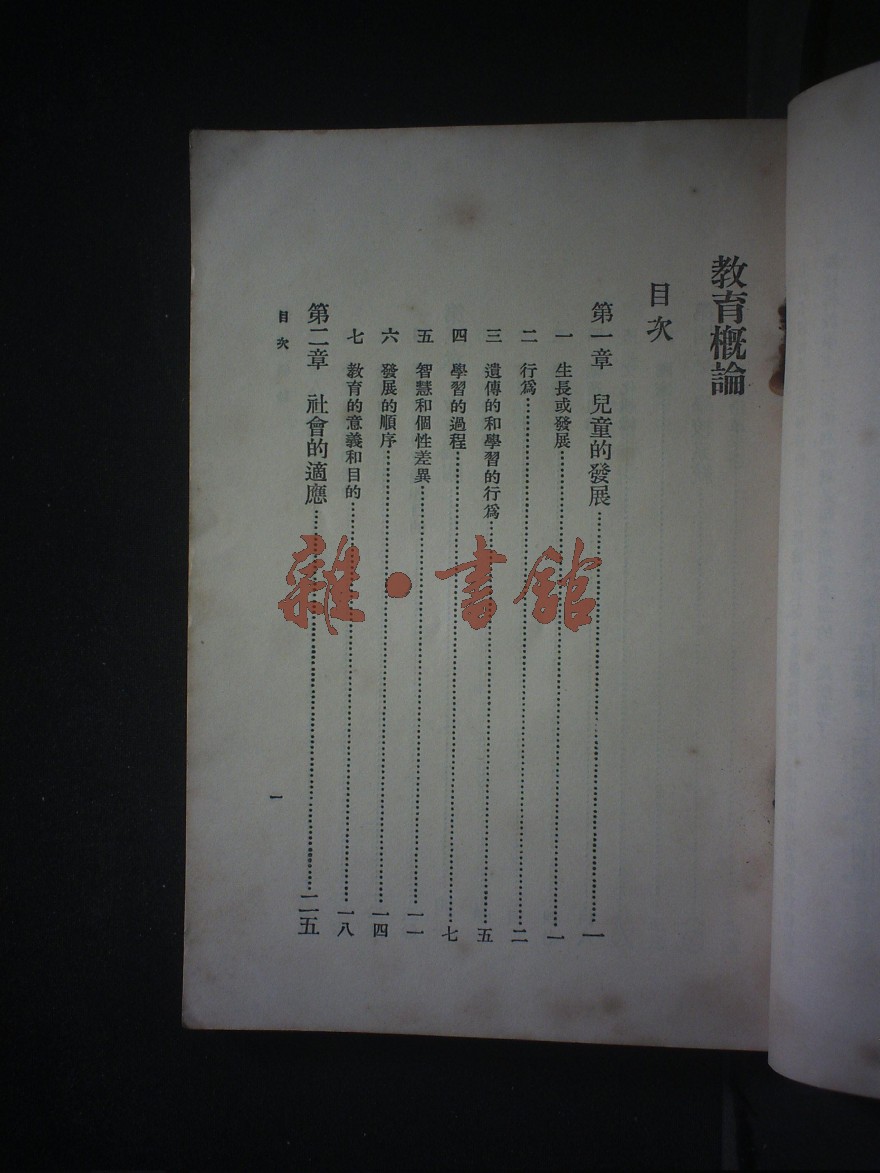 教育概論
目次
第一章 兒童的發展……一
一 生長或發展……一
二 行爲……二
三 遺傳的和學習的行爲……五
四 學習的過程……七
五 智慧和個性差異……一一
六 發展的順序……一四
七 教育的意義和目的……一八
第二章 社會的適應……二五
目次
一
雜·書館